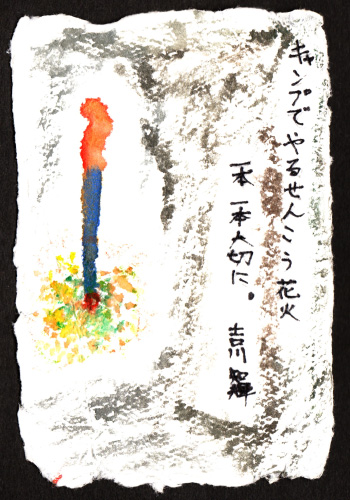 キャンプでやるせんこう花火
一本一本大切に。
吉川